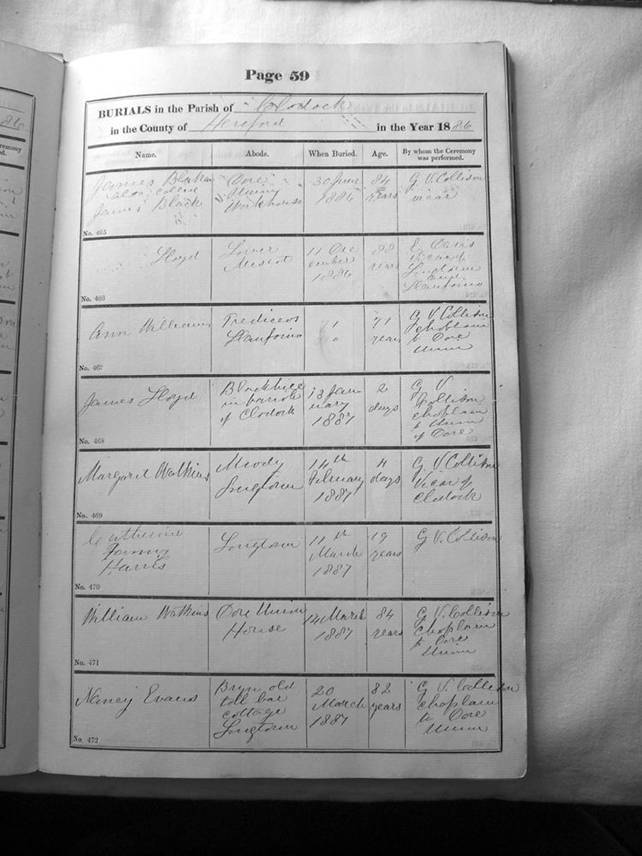 86
Page 59
BURIALS in the Parish of Clodock
in the County of Hereford in the Year 1886
Name. Abode. When Buried. Age. By whom the Ceremony was performed.
James
James Black
Dore
Workhouse
30 June
1886
84
years
G V Collison
Vicar
No. 465
Lloyd
Lower
11
1886
88
years
Vicar of
and
Llanfoino
No. 466
Ann Williams
Llanfoino
71
years
G V Collison
chaplain
to Dore
Union
No. 467
James Lloyd
Blackhill
in parish
of Clodock
13 Jan
uary
1887
2
days
G V
Collison
chaplain
to Union
of Dore
No. 468
Margaret Watkins
Longtown
14th
February
1887
4
days
G V Collison
Vicar of
Clodock
No. 469
Catherine
Fanny
Harris
Longtown
11th
March
1887
19
years
G V Collison
No. 470
William Watkins
Dore Union
House
14 March
1887
84
years
G V Collison
chaplain
to Dore
Union
No. 471
Nancy Evans
Bryn old
toll bar
cottage
Longtown
20
March
1887
82
years
G V Collison
chaplain
to Dore
Union
No. 472